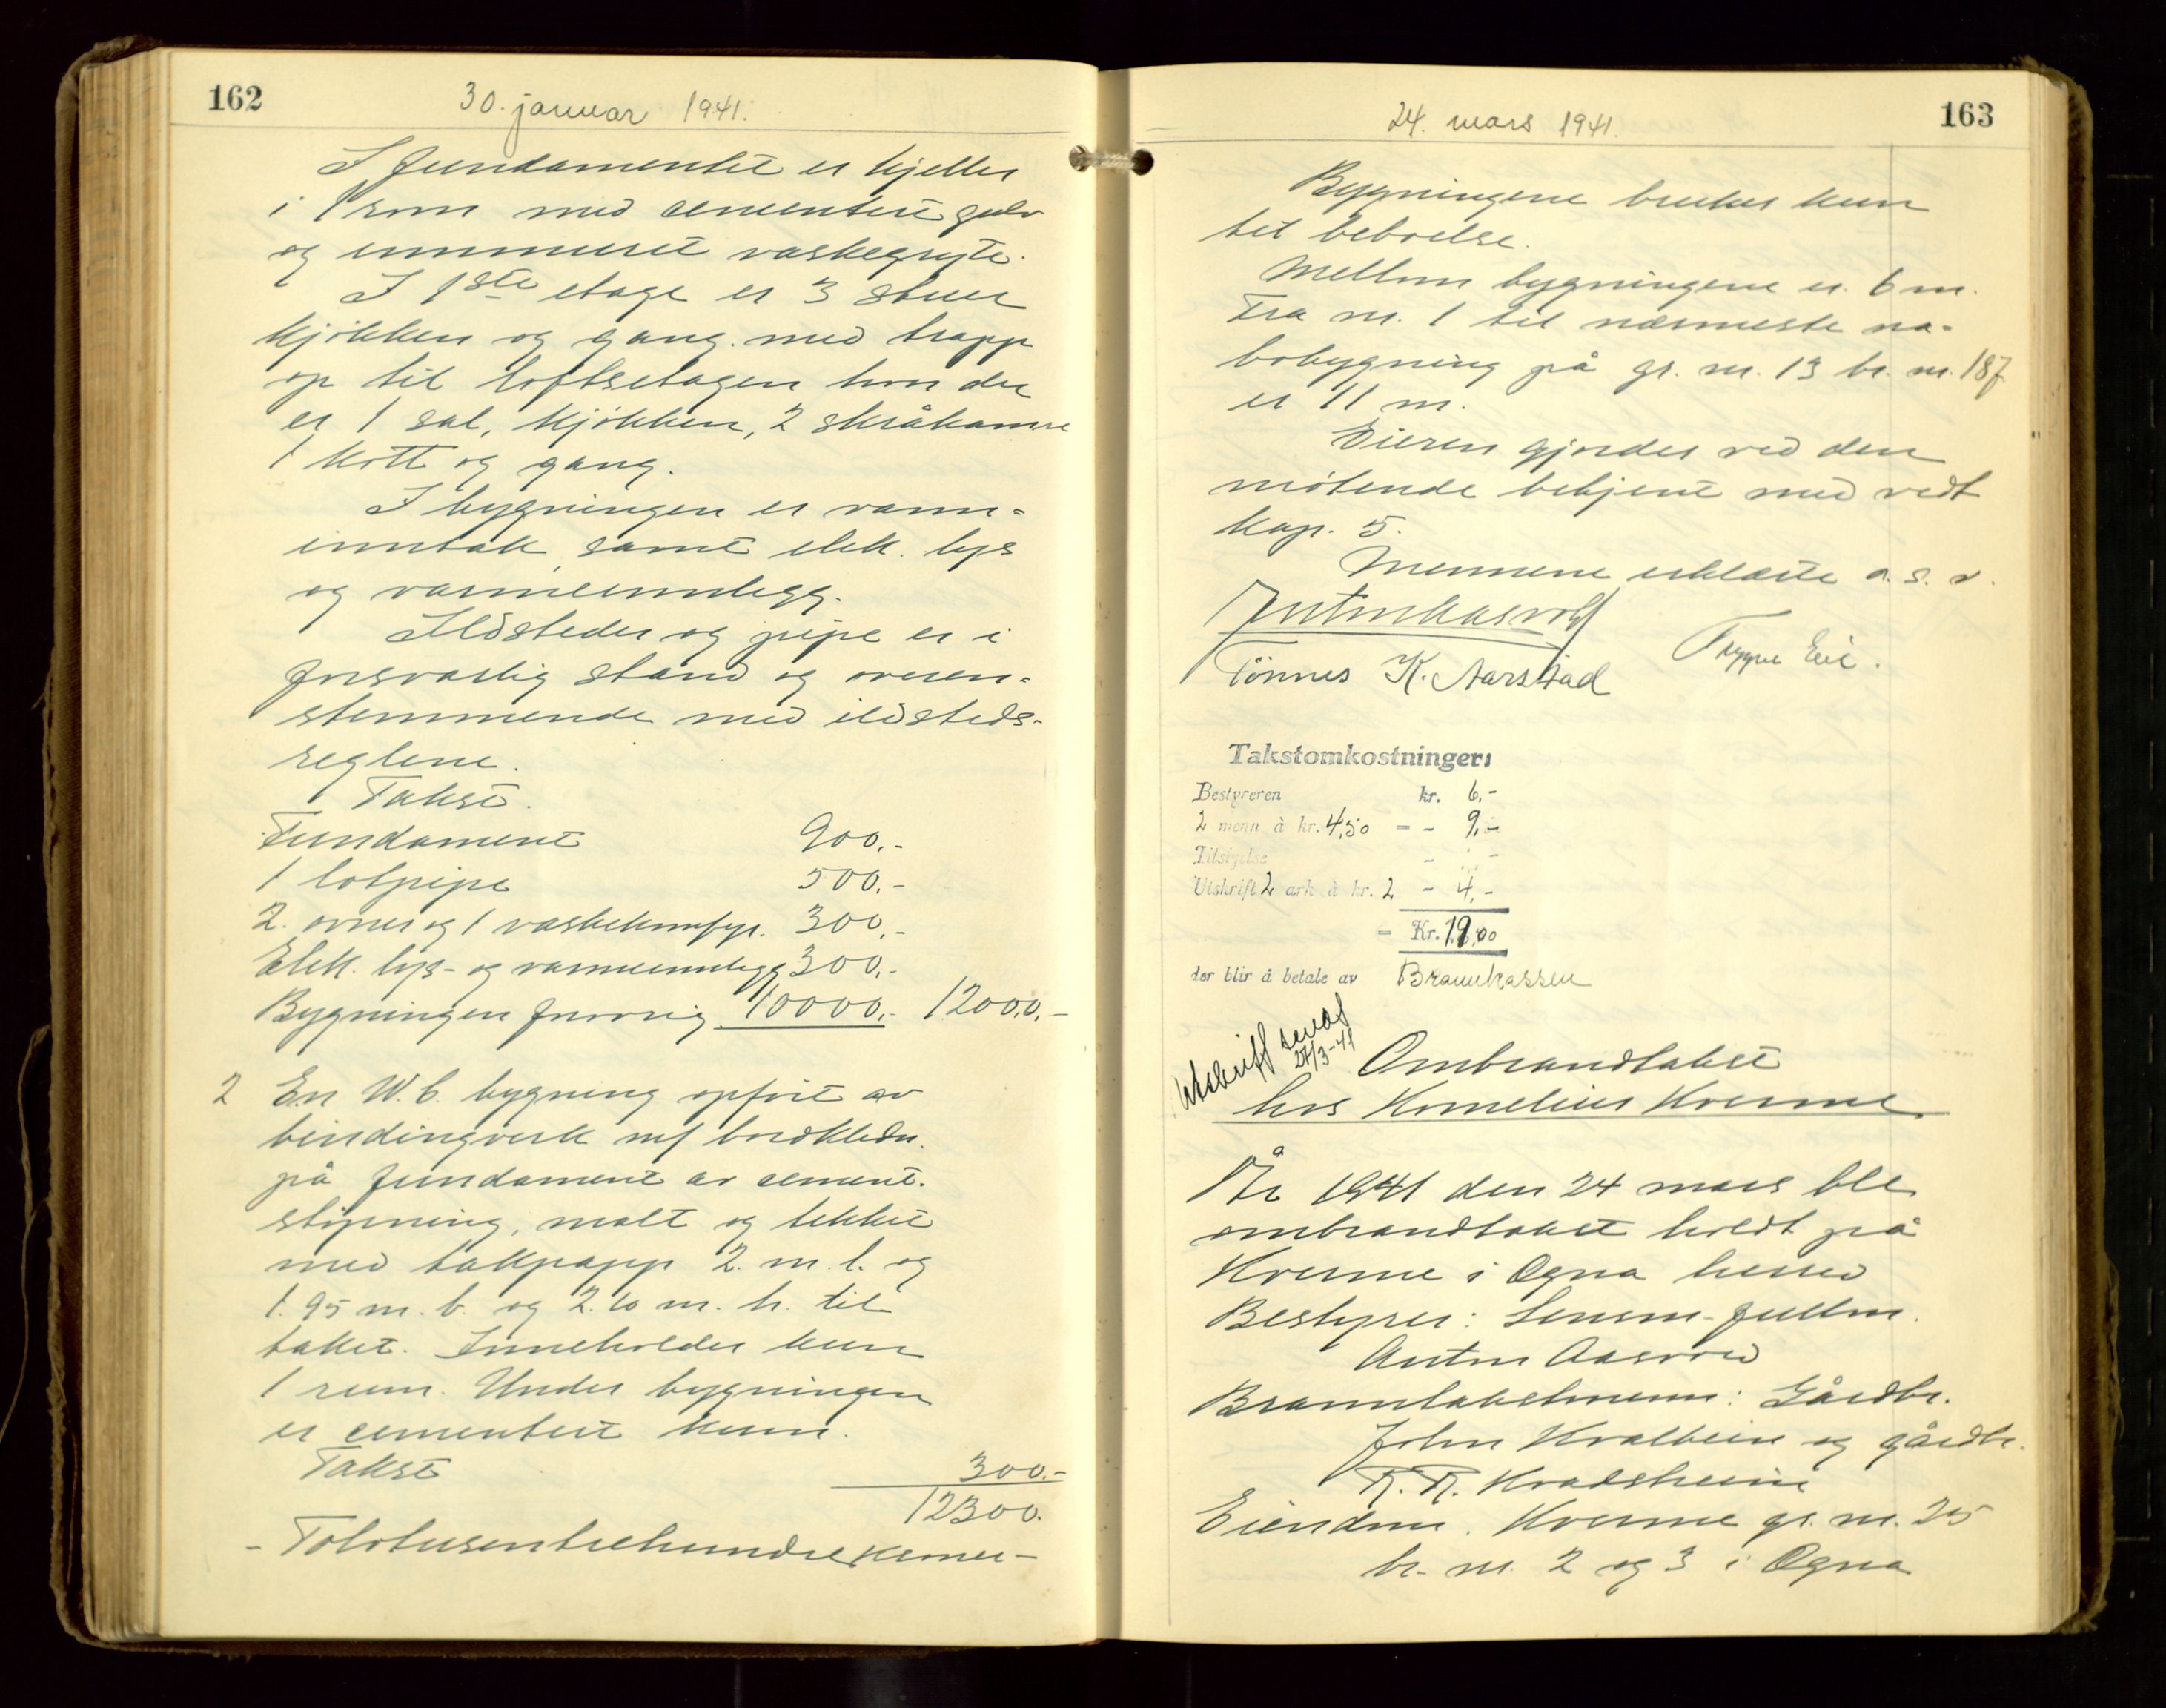 162
30. januar 1941.
I fundamentet er kjeller
i 1 rom med cementert gulv
og innmuret vaskegryte.
I 1ste etage er 3 stuer
kjökken og gang. med trapp
op til loftsetagen hvor der
er 1 sal, kjökken, 2 skråkamre
1 kott og gang.
I bygningen er vann-
inntak, samt elek. lys
og varmeinnlegg.
Ildsteder og pipe er i
forsvarlig stand og overen-
stemmende med ildsteds-
reglene.
Takst.
Fundament 900.-
1 lofpipe 500.-
2. ovner og 1 vaskekomfyr. 300.-
Elek. lys- og varmeinnlegg 300.-
Bygningen forövrig 10000.- 12000.-
2 En W.C. bygning opfört av
bindingverk m/ bordkledn.
på fundament av cement.
stöpning, malt og tekket
med takpapp 2. m. l. og
1.95 m. b. og 2.10 m. h. til
taket. Inneholder kun
1 rum. Under bygningen
er cementert kum.
Takst 300.-
12300.
- Tolvtusentrehundrekroner -
24. mars 1941.
163
Bygningene brukes kun
til beboelse.
Mellom bygningene er 6 m.
Fra nr. 1 til nærmeste na-
bobygning på gr. nr. 13 br. nr. 187
er 11 m.
Eieren gjordes ved den
mötende bekjent med vedt
kap. 5.
Mennene erklærte o. s. v.
Anton Aasvold
Tönnes K. Aarstad Trygve Eie.
Takstomkostninger:
Bestyreren kr. 6,-
2 menn à kr. 4,50 - - 9,-
Tilsigelse - -
Utskrift 2 ark à kr. 2 - 4,-
- Kr. 19,00
der blir å betale av Brannkassen
Utskrift send
27/3-41
Ombrandtakst
hos Kornelius Kverme
År 1941 den 24 mars ble
ombrandtakst holdt på
Kverme i Ogna herred
Bestyrer: Lensm-fullm.
Anton Aasvold
Branntakstmenn: Gårdbr.
John Kvalbein og gårdbr.
R. R. Hradsheim
Eiendom. Kverme gr. nr. 25
br. nr. 2 og 3 i Ogna